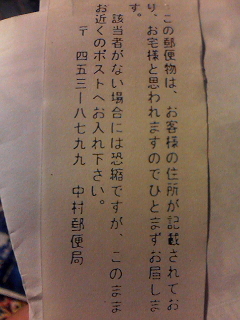 この郵便物は、お客様の住所が記載されてお
り、お宅様と思われますのでひとまずお届しま
す。
該当者がない場合には恐縮ですが、このまま
お近くのポストへお入れ下さい。
〒 四五三ー八七九九 中村郵便局